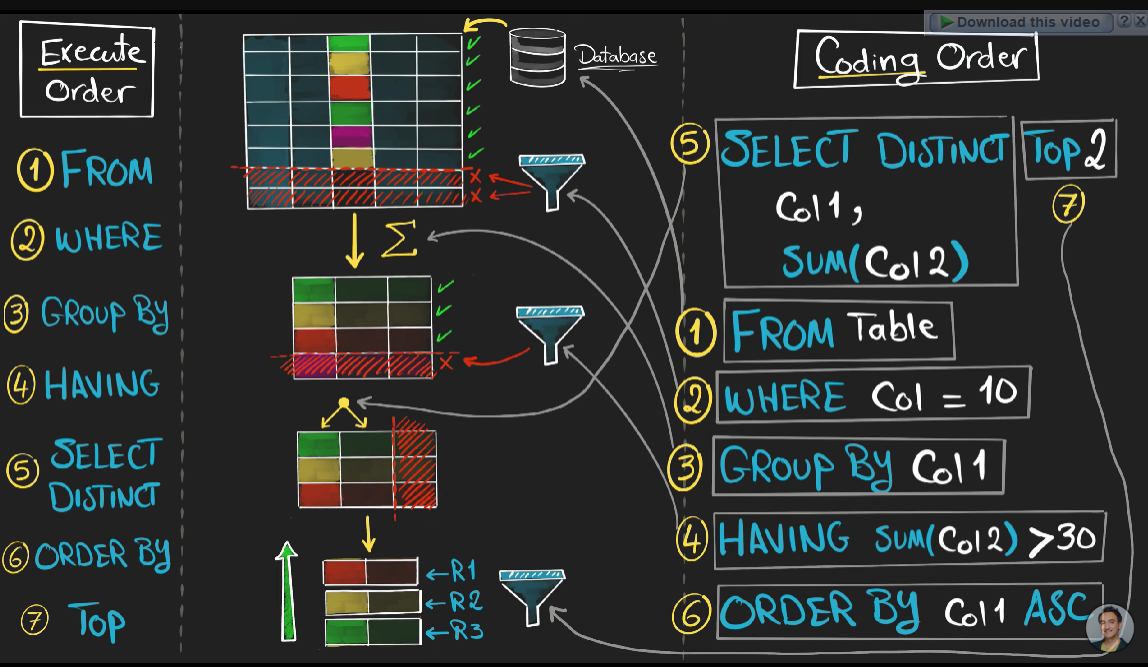 Download this video ? X
Execute
Order
① FROM
② WHERE
③ GROUP BY
④ HAVING
⑤ SELECT
DISTINCT
⑥ ORDER BY
⑦ TOP
Database
Σ
X
X
X
←R1
←R2
←R3
Coding Order
⑤ SELECT DISTINCT TOP 2
Col1,
⑦
SUM(Col2)
① FROM Table
② WHERE Col = 10
③ GROUP BY Col1
④ HAVING SUM(Col2) >30
⑥ ORDER BY Col1 ASC